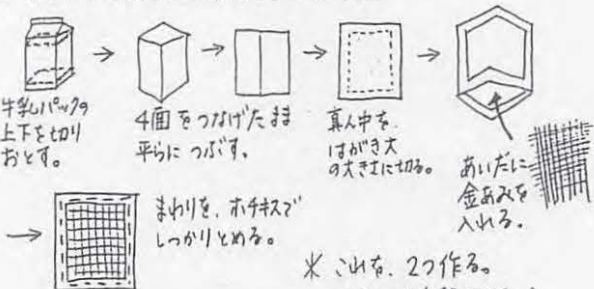 牛乳パックの
上下を切り
おとす。
4面をつなげたまま
平らにつぶす。
真ん中を
はがき大
の大きさに切る。
あいだに
金あみを
入れる。
まわりを、ホチキスで
しっかりとめる。
※これを、2つ作る。